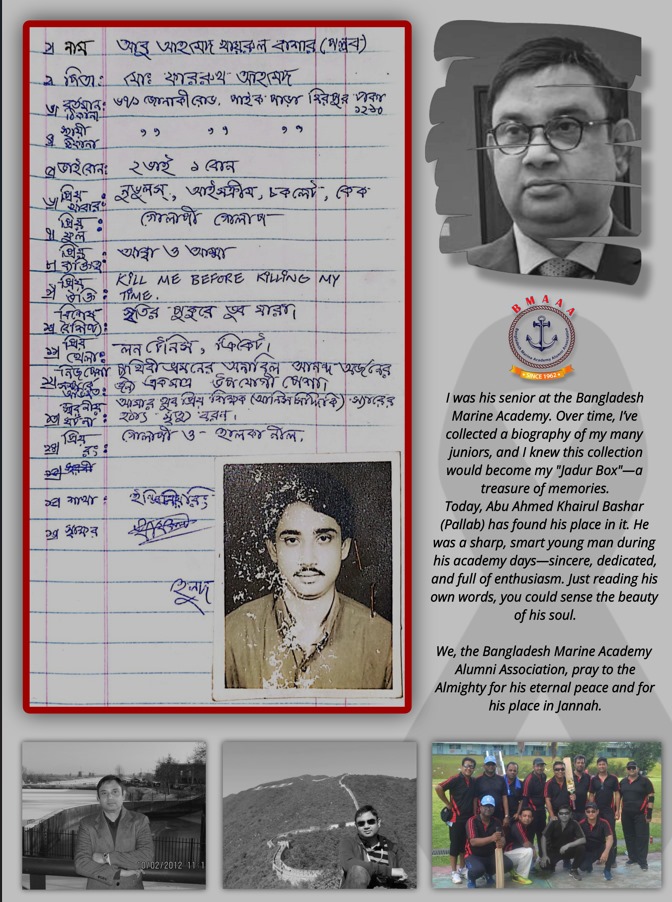 ১। নাম আবু আহমেদ খায়রুল বাশার (পল্লব)
২ পিতা: মোঃ ফাররুখ আহমেদ
৩। বর্তমান ঠিকানা: ৬৭০ জোনাকীরোড, পাইক পাড়া মিরপুর ঢাকা
৪ স্থায়ী ঠিকানা ,, ,, ,,
৫ ভাইবোন: ২ভাই ১ বোন
৬। প্রিয় খাবার: নুডুলস্, আইসক্রীম, চকলেট, কেক
৭। প্রিয় ফুল: গোলাপী গোলাপ
৮। প্রিয় ব্যক্তিত্ব: আব্বা ও আম্মা
৯। প্রিয় উক্তি: KILL ME BEFORE KILLING MY
TIME.
বিশেষ বৈশিষ্ট্য: পুকুরে ডুব মারা।
১১। প্রিয় খেলা: লন টেনিস, ক্রিকেট।
১২। নিজ পেশা সম্পর্কে পৃথিবী ভ্রমনের অনাবিল আনন্দ অর্জনের
একমাত্র উপযোগী পেশা।
১৩। স্মরনীয় ঘটনা: আমার খুব প্রিয় শিক্ষক স্যারের
হঠাৎ মৃত্যু বরণ।
১৪। প্রিয় রং: গোলাপী ও হালকা নীল।
শাখা: ইঞ্জিনিয়ারিং
স্বাক্ষর
BMAAA
Bangladesh Marine Academy Alumni Association
• SINCE 1962 •
I was his senior at the Bangladesh
Marine Academy. Over time, I've
collected a biography of my many
juniors, and I knew this collection
would become my "Jadur Box"—a
treasure of memories.
Today, Abu Ahmed Khairul Bashar
(Pallab) has found his place in it. He
was a sharp, smart young man during
his academy days—sincere, dedicated,
and full of enthusiasm. Just reading his
own words, you could sense the beauty
of his soul.
We, the Bangladesh Marine Academy
Alumni Association, pray to the
Almighty for his eternal peace and for
his place in Jannah.
/02/2012 11 1